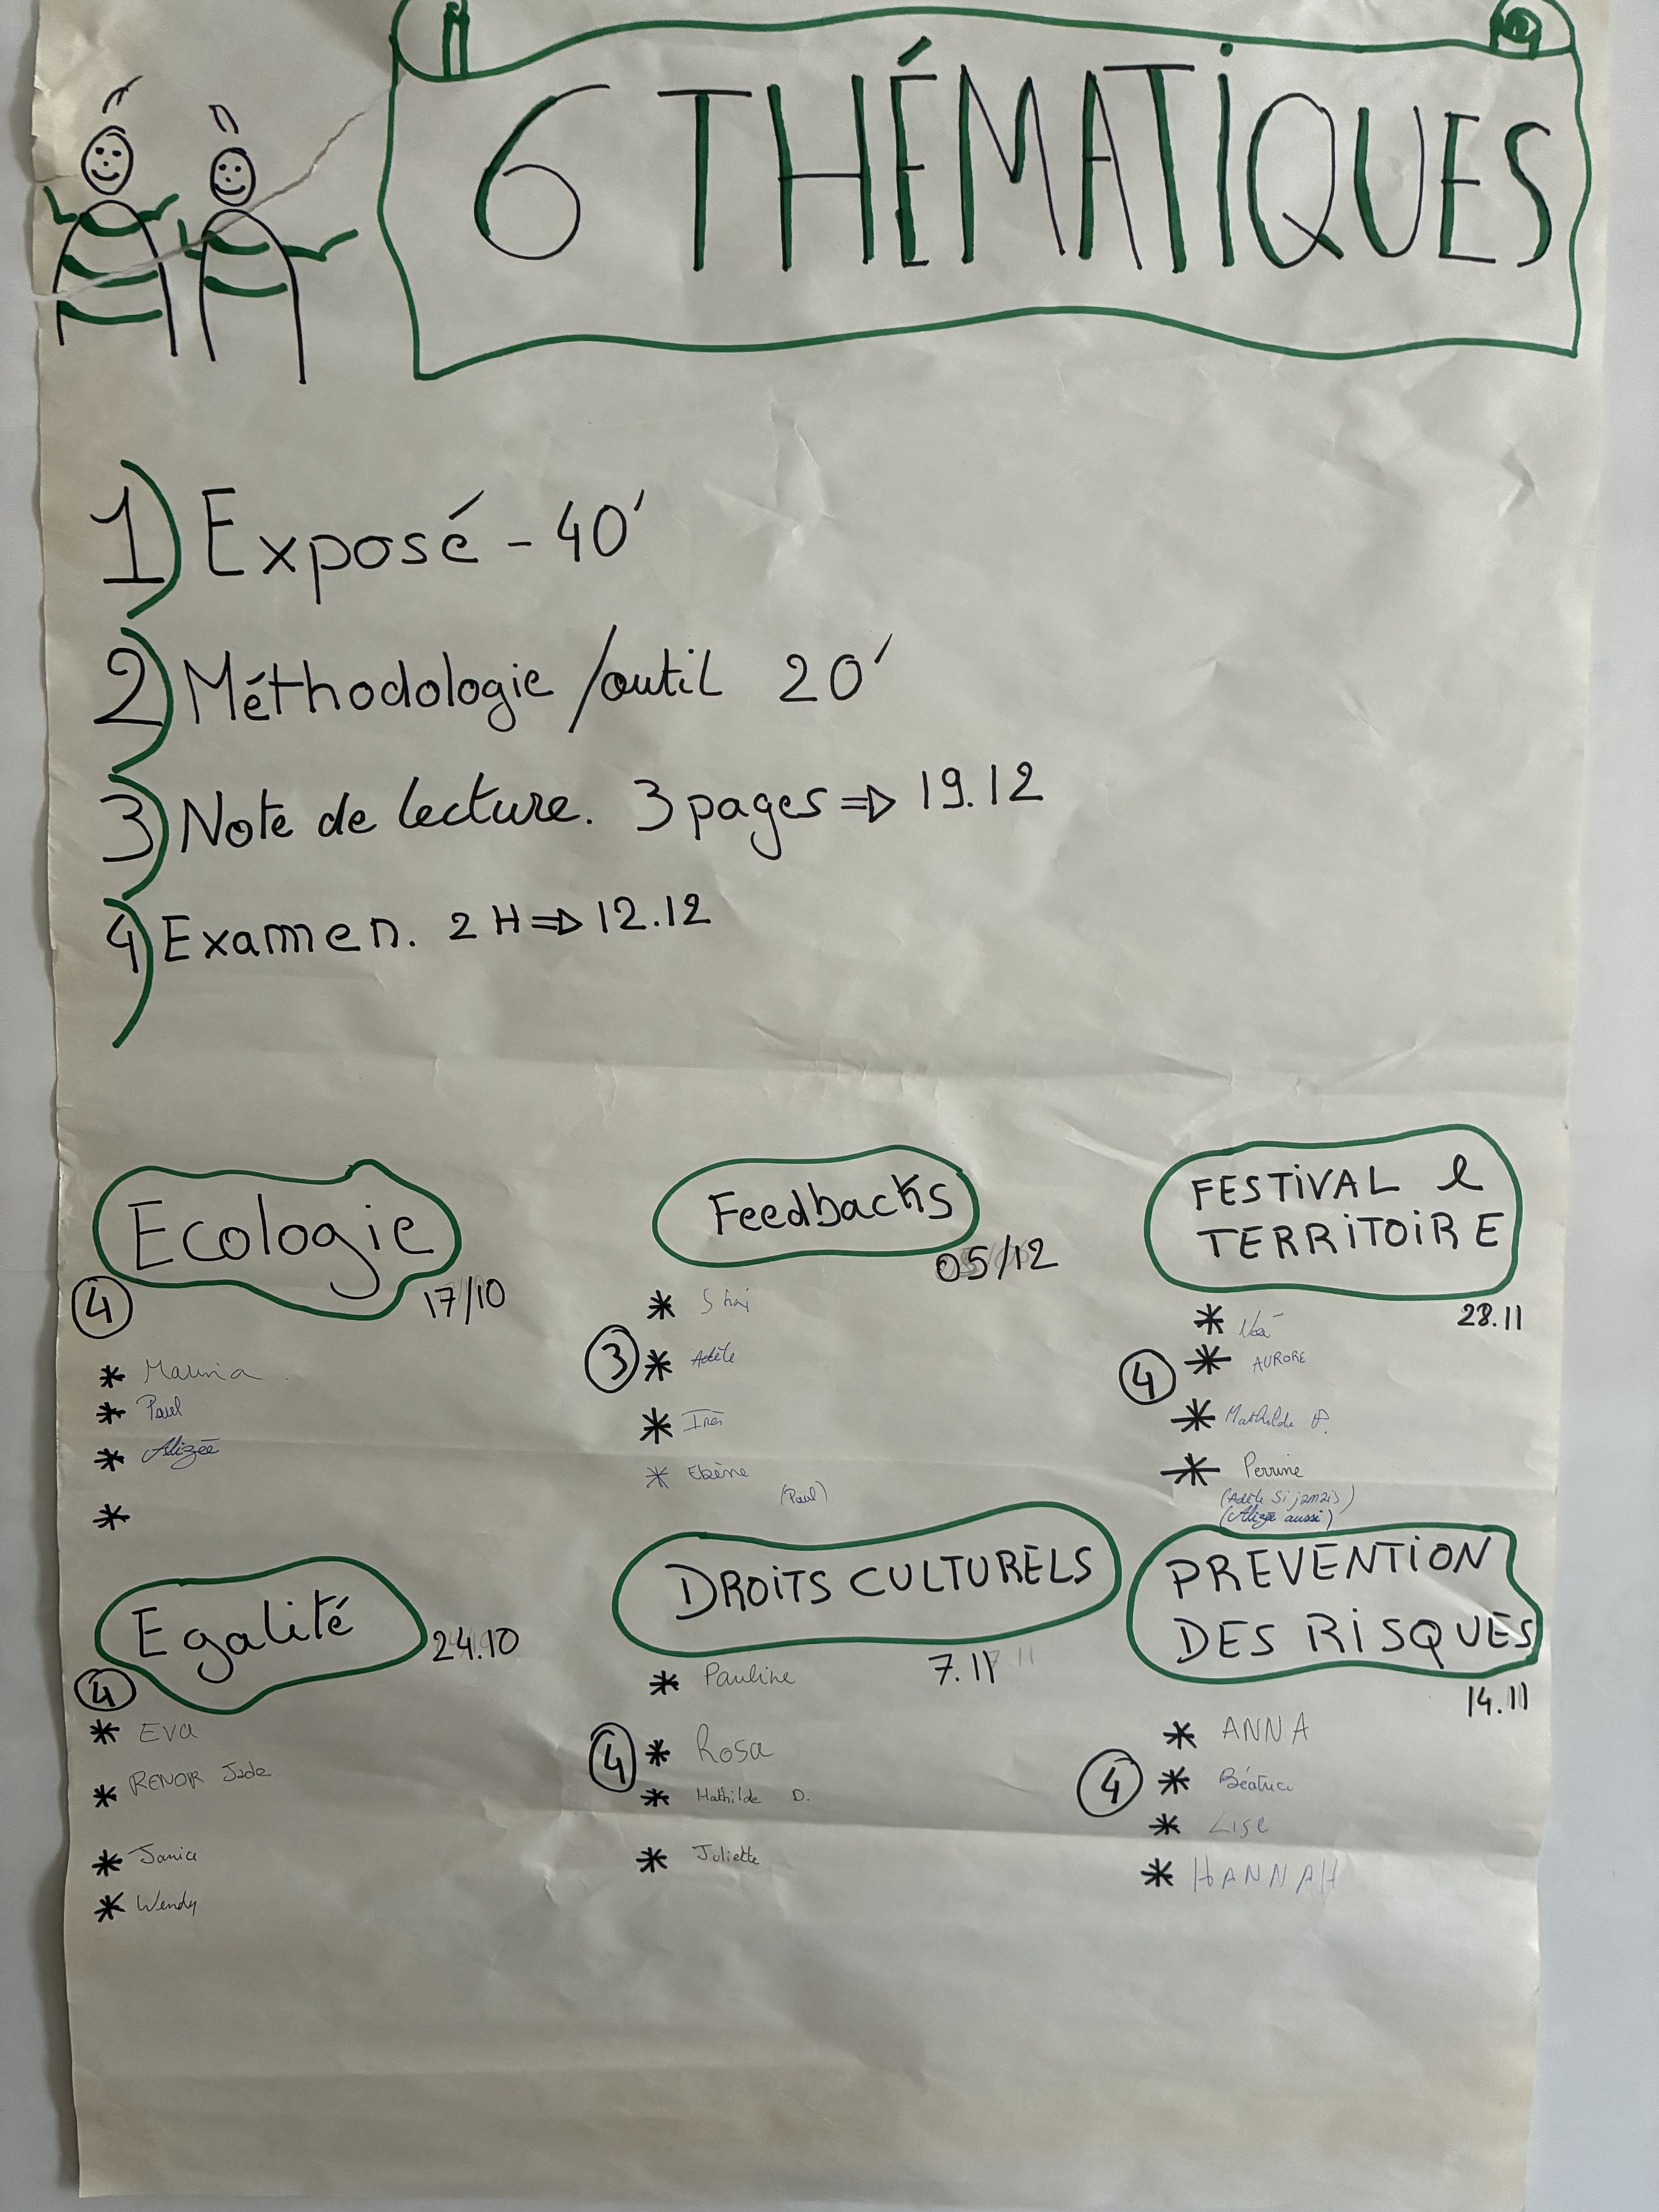 6 THÉMATiQUES
1) Exposé - 40'
2) Méthodologie /outil 20'
3) Note de lecture. 3 pages => 19.12
4) Examen. 2H => 12.12
Ecologie
17/10
4
* Maunia
* Paul
* Alizée
*
Feedbacks
05/12
*
3 * Adèle
* Inès
* Ebène
(Paul)
FESTiVAL &
TERRiTOiRE
28.11
* Noé
4 * AURORE
* Mathilde P.
* Perrine
(Adèle Si jamais)
(Alizée aussi)
Egalité
24.10
4
* Eva
* RENOIR Jade
* Janice
* Wendy
DROiTS CULTURELS
7.11
* Pauline
4 * Rosa
* Mathilde D.
* Juliette
PREVENTiON
DES RiSQUES
14.11
* ANNA
4 * Béatrice
* Lise
* HANNAH